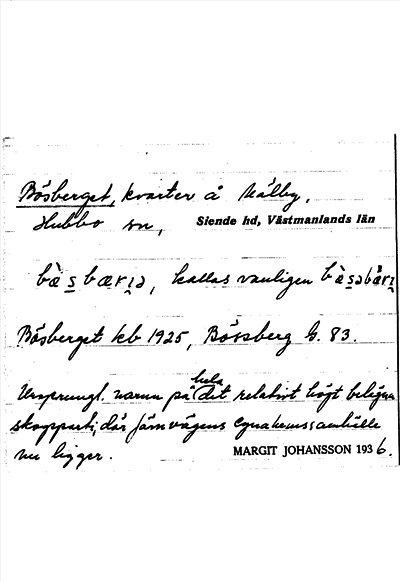 Bösberget, kvarter å Målby,
Hubbo sn, Siende hd, Västmanlands län
bæ̀s̲bærı̲ə, kallas vanligen bæ̀s̲əbærı̲
Bösberget kb 1925, Bössberg G. 83.
Ursprungl. namn på hela det relativt högt belägna
skogsparti, där Järnvägens egnahemssamhälle
nu ligger. MARGIT JOHANSSON 1936.